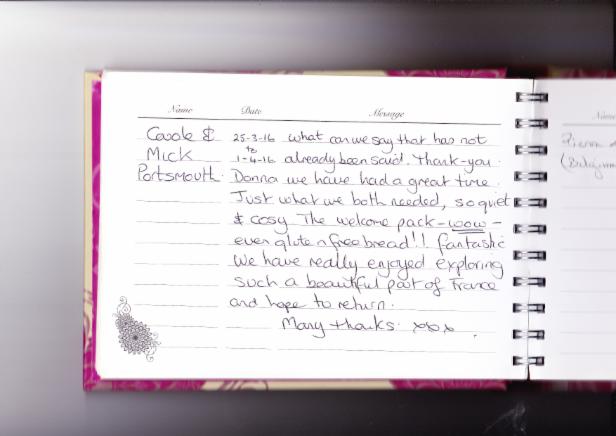 Name Date Message
Carole & 25-3-16 what can we say that has not
to
Mick 1-4-16 already been said. Thank-you.
Portsmouth. Donna we have had a great time.
Just what we both needed, so quiet
& cosy The welcome pack - wow -
even gluten free bread!! fantastic
We have really enjoyed exploring
such a beautiful part of France
and hope to return.
Many thanks. xoxox
Name
Pierre